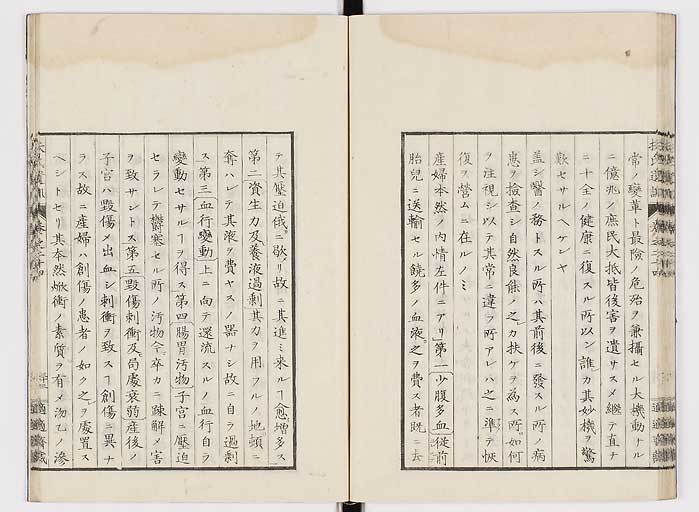 常ノ變革ト最險ノ危殆ヲ兼攝セル大機動ナル
ニ億兆ノ庶民大抵皆後害ヲ遺サスメ繼テ直チ
ニ十全ノ健康ニ復スル所以ン誰カ其妙機ヲ驚
歎セサルヘケンヤ
盖シ醫ノ務トスル所ハ其前後ニ發スル所ノ病
患ヲ檢査シ自然良能ノ之カ扶ケヲ為ス所如何
ヲ注視シ以テ其常ニ違フ所アレハ之ニ準テ恢
復ヲ營ムニ在ルノミ
産婦本然ノ内情左件ニアリ第一少腹多血從前
胎兒ニ送輸セル饒多ノ血液之ヲ費ス者既ニ去
テ其壓迫俄ニ歇リ故ニ其進ミ来ルヿ愈増多ス
第二資生力及養液過剩其力ヲ用フルノ地頓ニ
奪ハレテ其液ヲ費ヤスノ器ナシ故ニ自ラ過剩
ス第三血行變動上ニ向テ還流スルノ血行自ラ
變動セサルヿヲ得ス第四腸胃汚物子宮ニ壓迫
セラレテ欝塞セル所ノ汚物今卒カニ疎解メ害
ヲ致サントス第五毀傷刺衝及局處衰弱産後ノ
子宮ハ毀傷メ出血シ刺衝ヲ致スヿ創傷ニ異ナ
ラス故ニ産婦ハ創傷ノ患者ノ如ク之ヲ處置ス
ヘシトセリ其本然焮衝ノ素質ヲ有メ汤乙ノ滲
扶氏遺訓
卷之二十四
適適齋藏